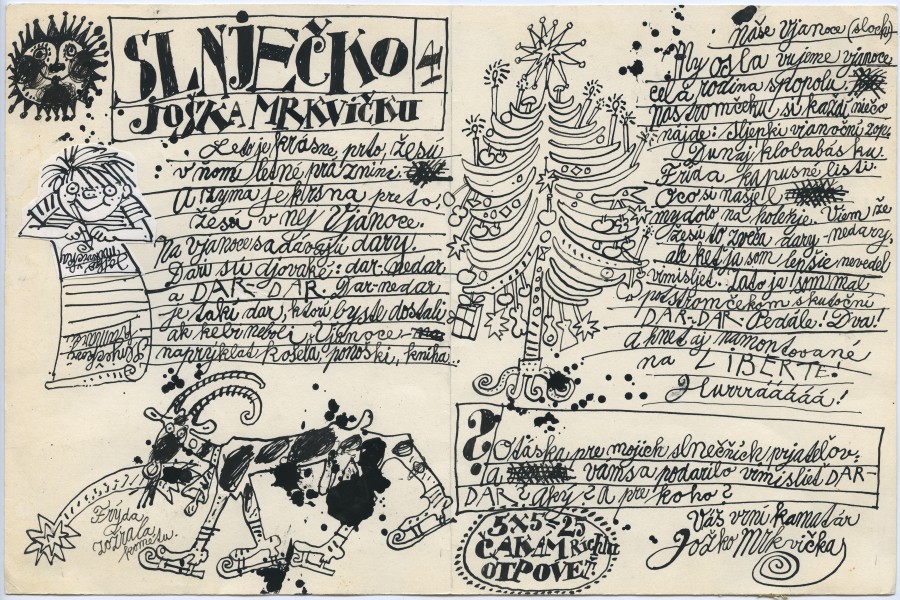 SLNJEČKO
JOŠKA MRKVIČKU
Leto je krásne prto, žesu
v nom letné prázniní.
A zyma je krsna preto,
žesu v nej Vjánoce.
Na vjánoce sa dávajú dary.
Daru sú dvojaké: dar-nedar
a DAR-DAR. Dar-nedar
je takí dar, ktorí byste dostali
ak keby neboli Vjánoce
napryklat košela, ponoski, kniha...
Joška
Mrkvička
Frýda
zožrala
kométu.
Náše vjanoce (sloch)
My osla vujeme vjánoce
celá rodina spopolu.
Nástromčekuj si každí niečo
nájde: sljepki vjanoční zop,
Dunaj klobabásku.
Frída kapusné listí.
Oco si nasjel
mydolo na kolekje. Viem že
žesu to zveča dary-nedary,
ale keď ja som lepsie nevedel
vrmisljeť. Zato ja som mal
prístromčekom skutoční
DAR-DAR. Pedále! Dva!
a hneť aj namontované
na LIBERTE!
Hurrráááá!
? Otáska pre mojich slnečňích prjatělov:
A vám sa podarilo vrmislieť DAR-
DAR? Akí? A pre koho?
5x5=25
ČAKÁM Richlu
OTPOVEŤ!
Váš vrní kamatár
Jožko Mrkvička